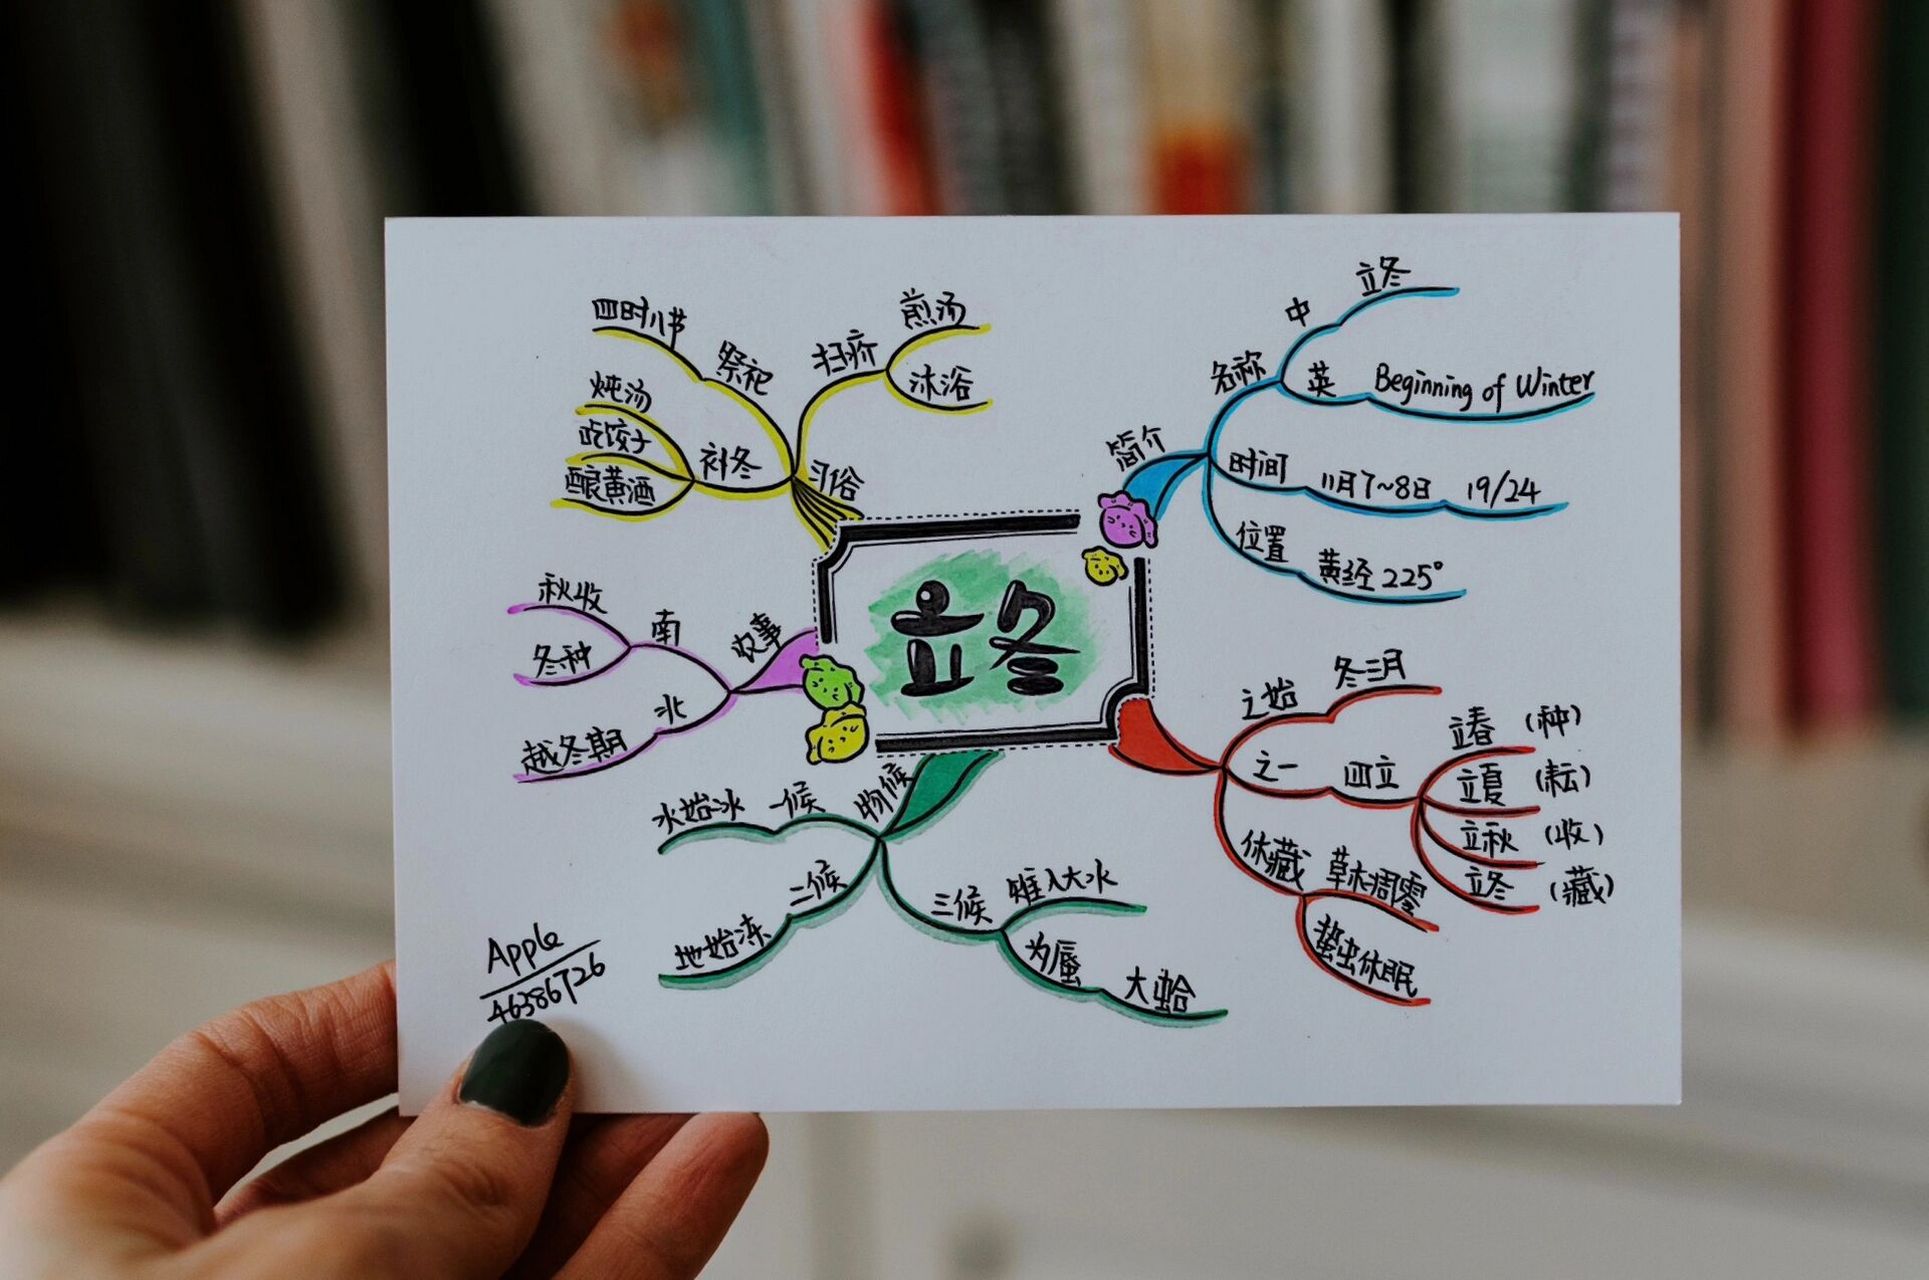 立冬
简介
名称
中
立冬
英
Beginning of Winter
时间
11月7~8日
19/24
位置
黄经225°
之始
冬三月
之一
四立
立春 (种)
立夏 (耘)
立秋 (收)
立冬 (藏)
休藏
草木凋零
蛰虫休眠
物候
一候
水始冰
二候
地始冻
三候
雉入大水
为蜃
大蛤
农事
南
秋收
冬种
北
越冬期
习俗
祭祀
四时八节
补冬
炖汤
吃饺子
酿黄酒
扫疥
煎汤
沐浴
Apple
46386726